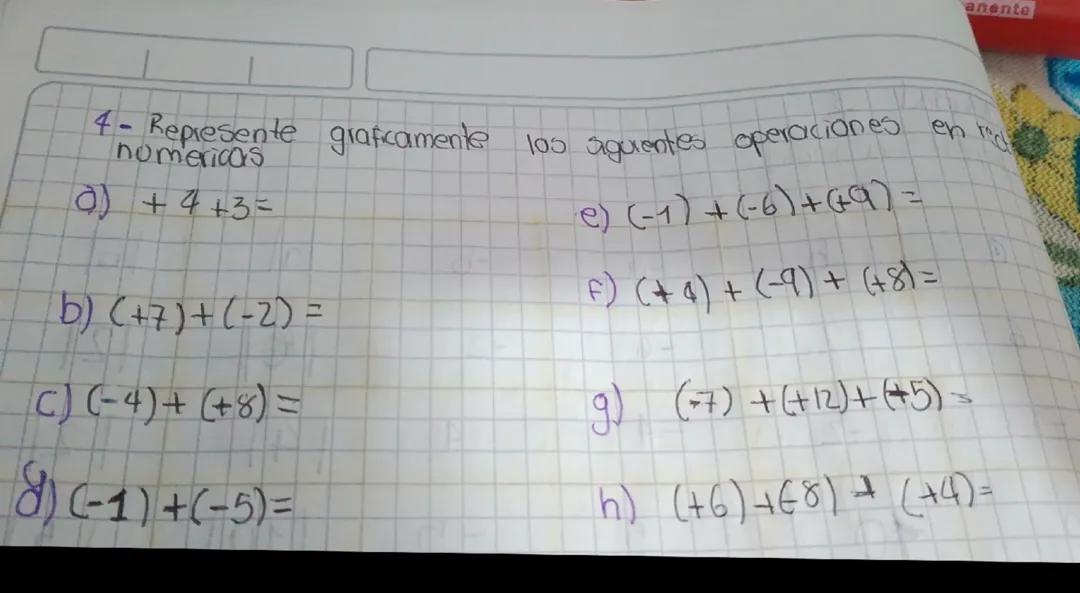 anente
4- Represente graficamente los siguientes operaciones en
numericas
a) +4+3=
b) (+7)+(-2) =
c) (-4)+ (+8) =
d) (-1) +(-5)=
e) (-1) +(-6)+(+9) =
f) (+4) + (-9) + (+8)=
g) (-7) +(+12)+(+5)=
h) (+6)+(-8)+ (+4)=